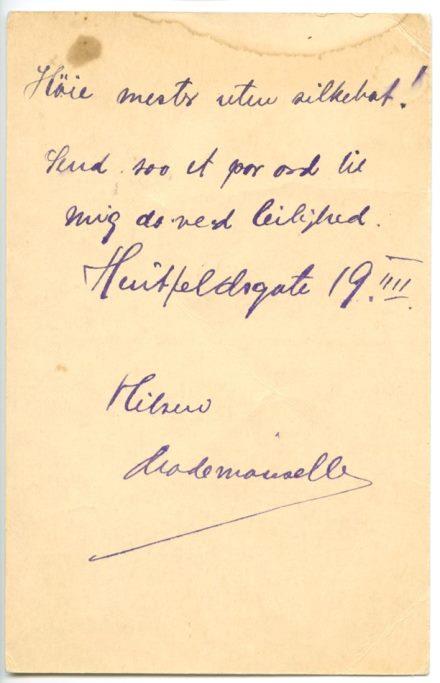 Høie mester uten silkehat!
Send saa et par ord til
mig da ved leilighed.
Huitfeldsgate 19 IIII
Hilsen
Mademoiselle